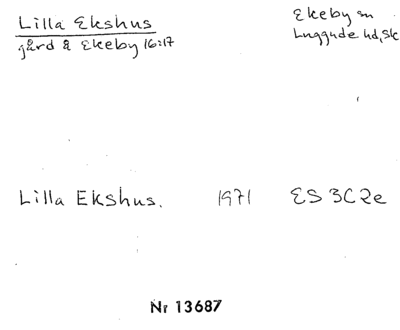 Lilla Ekshus
gård å Ekeby 16:17
Ekeby sn
Luggude hd, Sk
Lilla Ekshus. 1971 ES 3C2e
Nr 13687